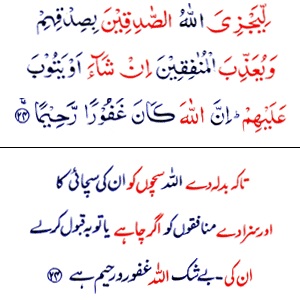 لِّيَجْزِىَ اللّٰهُ الصّٰدِقِيْنَ بِصِدْقِهِمْ
وَيُعَذِّبَ الْمُنٰفِقِيْنَ اِنْ شَآءَ اَوْ يَتُوْبَ
عَلَيْهِمْ ؕ اِنَّ اللّٰهَ كَانَ غَفُوْرًا رَّحِيْمًا ۚ ﴿۲۴﴾
تاکہ بدلہ دے اللہ سچوں کو ان کی سچائی کا
اور سزا دے منافقوں کو اگر چاہے یا توبہ قبول کر لے
ان کی - بے شک اللہ غفور و رحیم ہے ﴿۲۴﴾